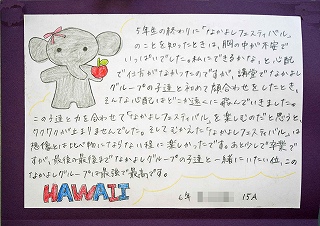 5年生の終わりに「なかよしフェスティバル」
のことを知ったときは、胸の中が不安で
いっぱいでした。私にできるかな、と心配
で仕方がなかったのですが、講堂でなかよし
グループの子達と初めて顔合わせをしたとき、
そんな心配はどこか遠くに飛んでいきました。
この子達と力を合わせて「なかよしフェスティバル」を楽しむのだと思うと、
ワクワクが止まりませんでした。そしてむかえた「なかよしフェスティバル」は
想像とは比べ物にならない程に楽しかったです。あと少しで卒業で
すが、最後の最後までなかよしグループの子達と一緒にいたい位、この
なかよしグループは最強で最高です。
HAWAII
6年
15A